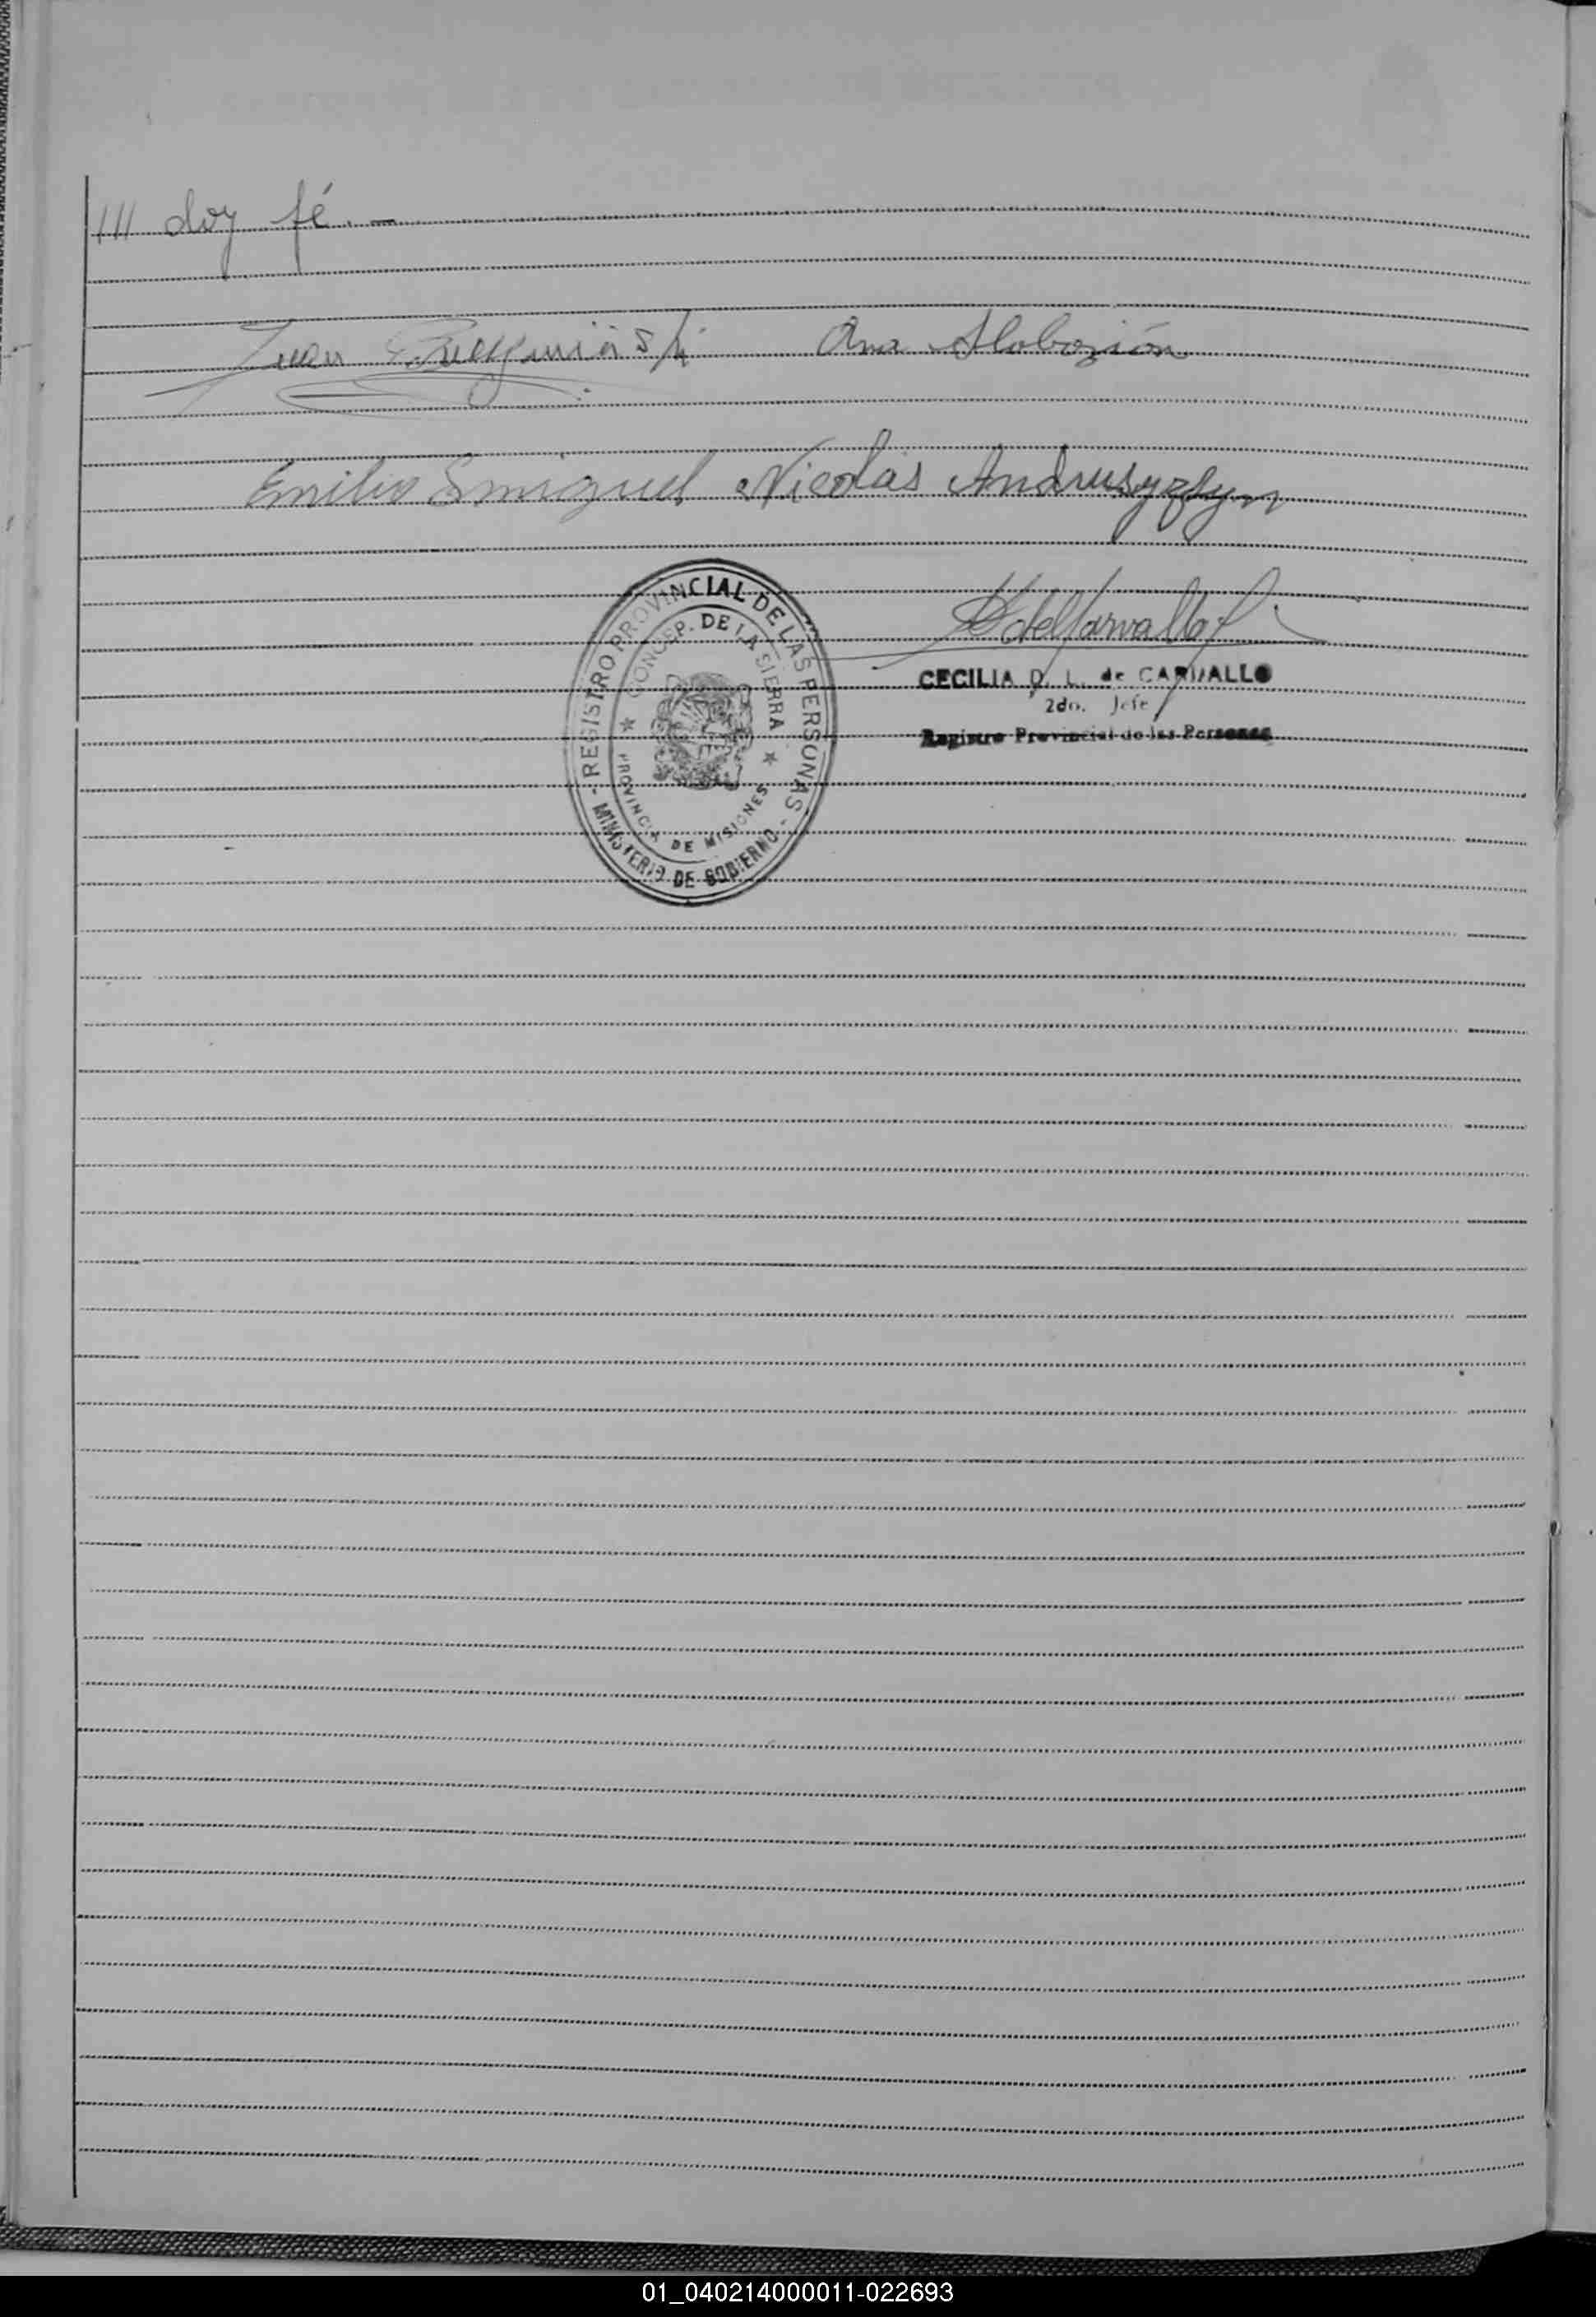 /// doy fé. -
Juan
Ana Slobozián
Emilio Smiguel Nicolas Andrusyzsyn
REGISTRO PROVINCIAL DE LAS PERSONAS -
CONCEP. DE LA SIERRA
PROVINCIA DE MISIONES
- MINISTERIO DE GOBIERNO -
CECILIA D. L. de CARVALLO
2do. Jefe
Registro Provincial de las Personas
01_040214000011-022693